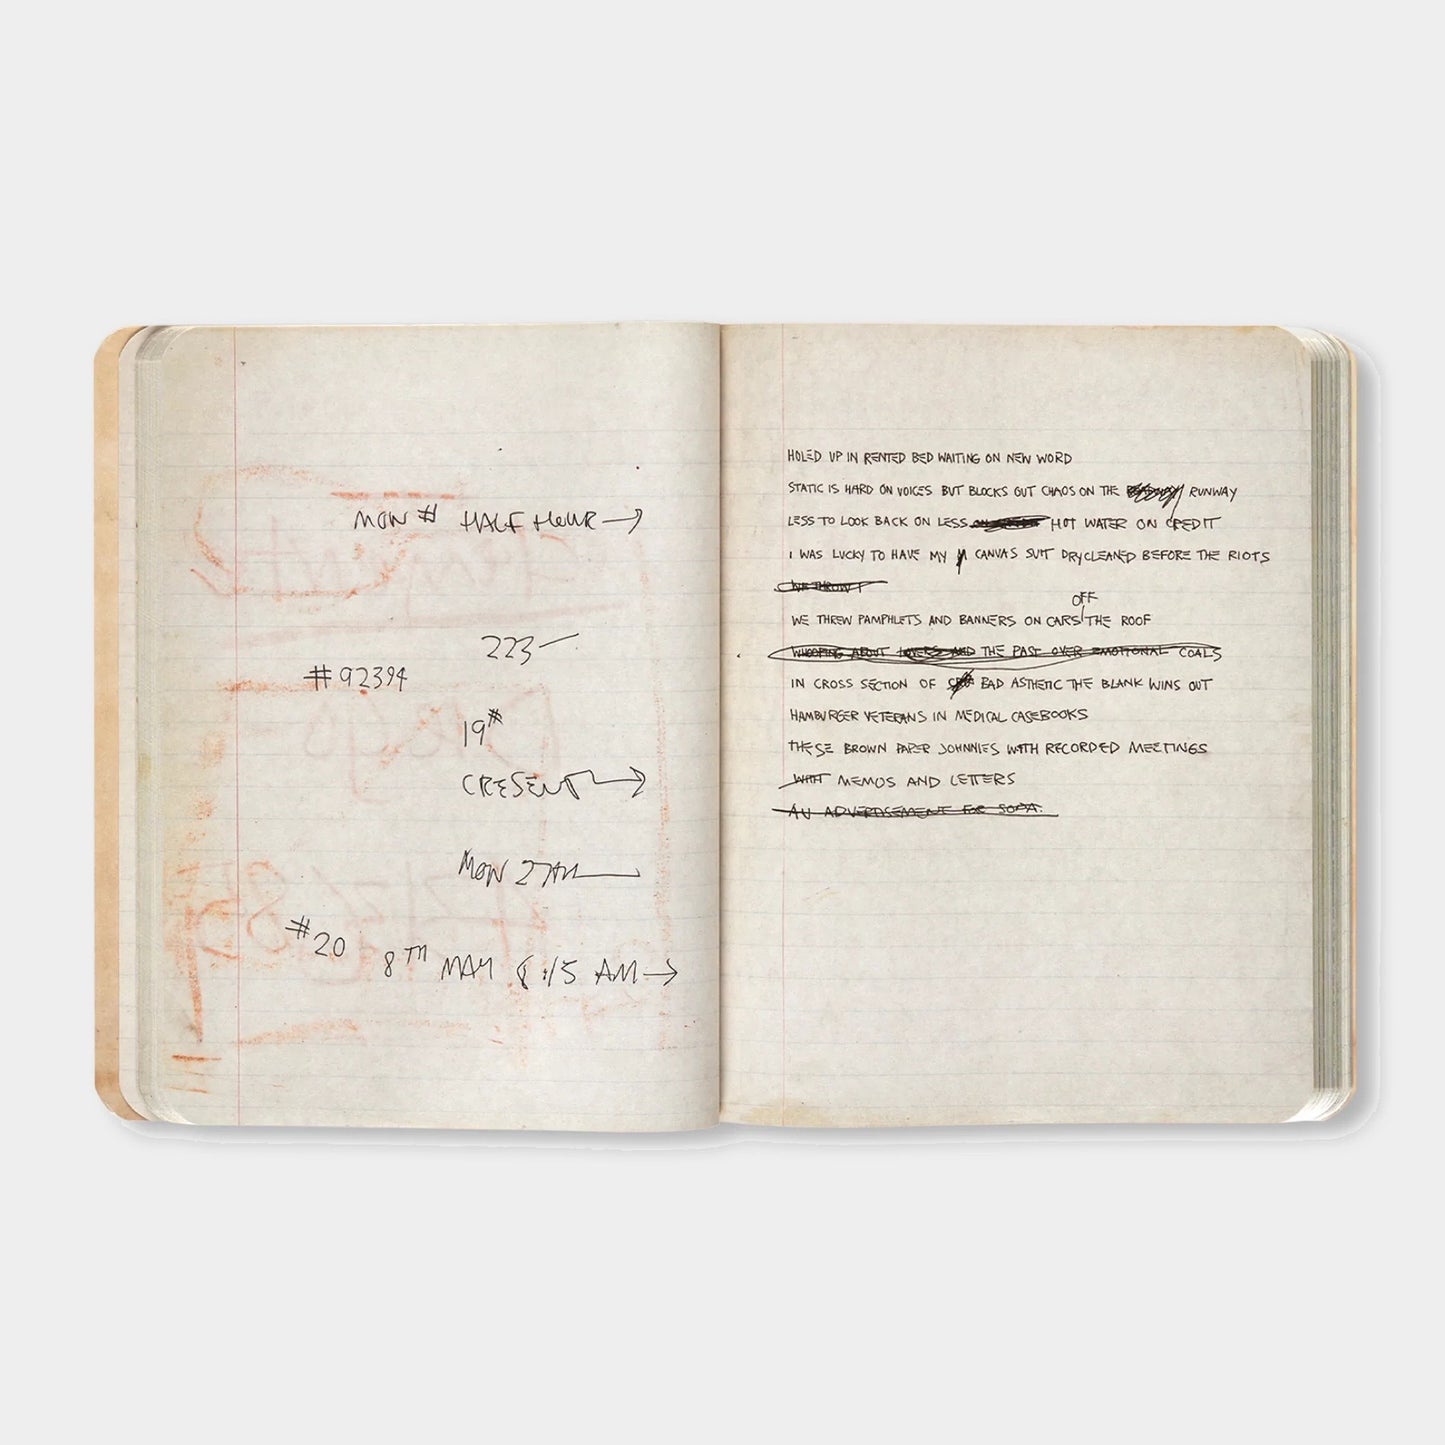 MON # HALF HOUR →
223—
#92394
19#
CRESENT →
MON 2 AM
#20
8TH MAY 8:15 AM →
HOLED UP IN RENTED BED WAITING ON NEW WORD
STATIC IS HARD ON VOICES BUT BLOCKS OUT CHAOS ON THE RUNWAY
LESS TO LOOK BACK ON LESS HOT WATER ON CREDIT
I WAS LUCKY TO HAVE MY CANVAS SUIT DRYCLEANED BEFORE THE RIOTS
WE THROW
OFF
WE THREW PAMPHLETS AND BANNERS ON CARS THE ROOF
WHOOPING ABOUT LOVERS AND THE PAST OVER EMOTIONAL COALS
IN CROSS SECTION OF BAD ASTHETIC THE BLANK WINS OUT
HAMBURGER VETERANS IN MEDICAL CASEBOOKS
THESE BROWN PAPER JOHNNIES WITH RECORDED MEETINGS
WITH MEMOS AND LETTERS
AN ADVERTISEMENT FOR SODA.